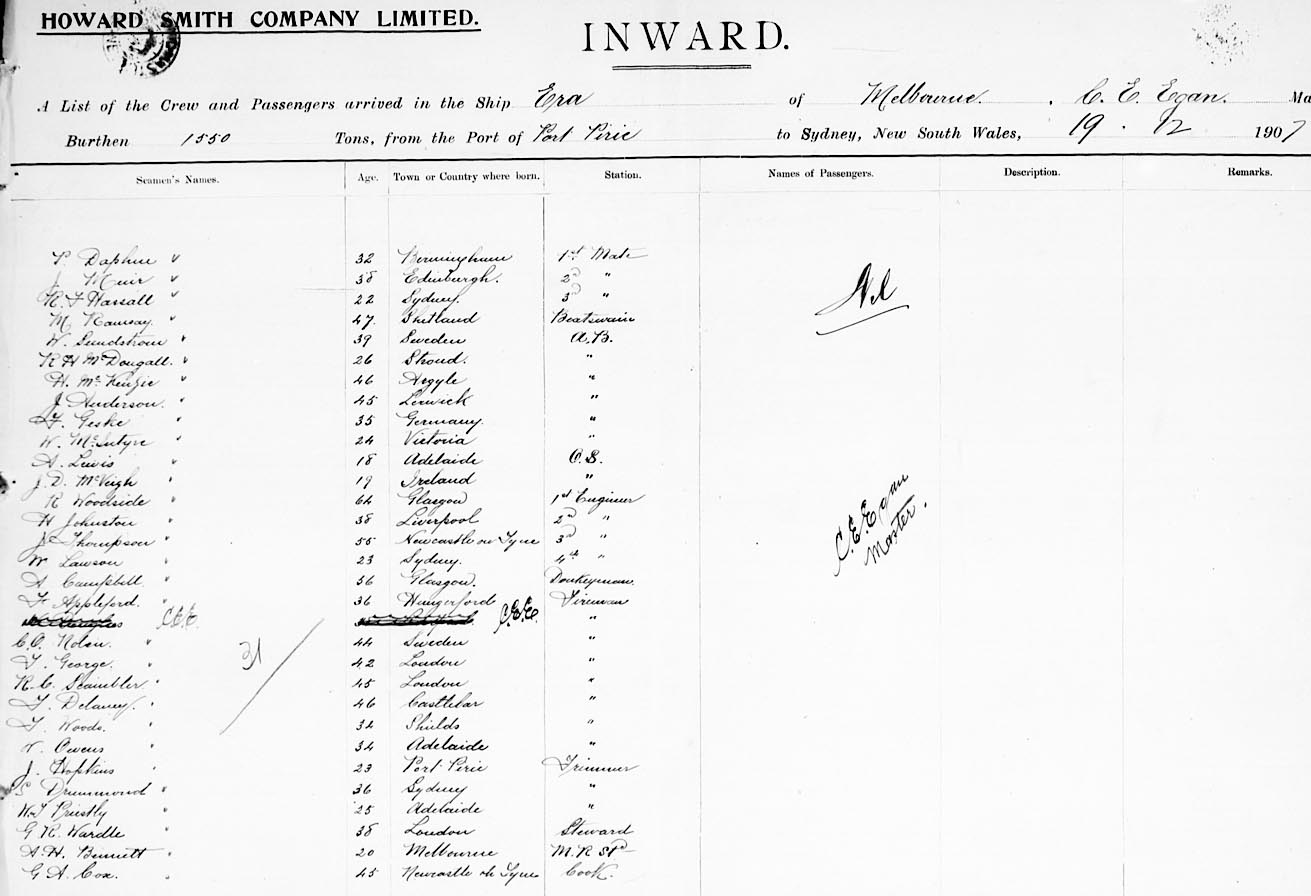 HOWARD SMITH COMPANY LIMITED.
INWARD.
A List of the Crew and Passengers arrived in the Ship Era of Melbourne. C. E. Egan. Ma
Burthen 1550 Tons, from the Port of Port Pirie to Sydney, New South Wales, 19 . 12 1907
Seamen's Names. Age. Town or Country where born. Station. Names of Passengers. Description. Remarks.
Daphne 32 Birmingham 1st Mate
J Muir 38 Edinburgh. 2d "
R. F Hassall 22 Sydney. 3d "
Nil
M Ramsay. 47. Shetland Boatswain
W. Sundstrom 39 Sweden A.B.
R H McDougall. 26 Stroud. "
H. McKenzie 46 Argyle "
J Anderson. 45 Lerwick "
F. Geske 35 Germany. "
W. McIntyre 24 Victoria "
A. Lewis 18 Adelaide O.S.
J. D. McVeigh 19 Ireland "
R Woodside 64 Glasgow 1st Engineer
H Johnston 38 Liverpool 2d "
C.E.Egan
Master.
J Thompson 55 Newcastle on Tyne 3d "
W Lawson 23 Sydney. 4th "
A Campbell 36 Glasgow. Donkeyman
F Appleford. 36 Hungerford Fireman
C.E.E. C.E.E. "
C.O. Nolin. 44 Sweden "
T. George. 42 London "
31
R. C. Scambler. 45 London "
T. Delaney. 46 Castlebar "
T. Woods. 34 Shields "
Owens 34 Adelaide "
J. Hopkins 23 Port Pirie Trimmer
S Drummond 36 Sydney "
W.J Priestly 25 Adelaide "
G R. Wardle 38 London Steward
A. H. Bennett 20 Melbourne M.R Std
G A. Cox. 45 Newcastle on Tyne Cook.